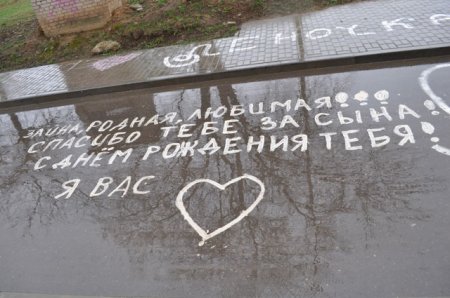 ЛЕНОЧКА
ЗАИНА, РОДНАЯ, ЛЮБИМАЯ!!!
СПАСИБО ТЕБЕ ЗА СЫНА!
С ДНЁМ РОЖДЕНИЯ ТЕБЯ!
Я ВАС